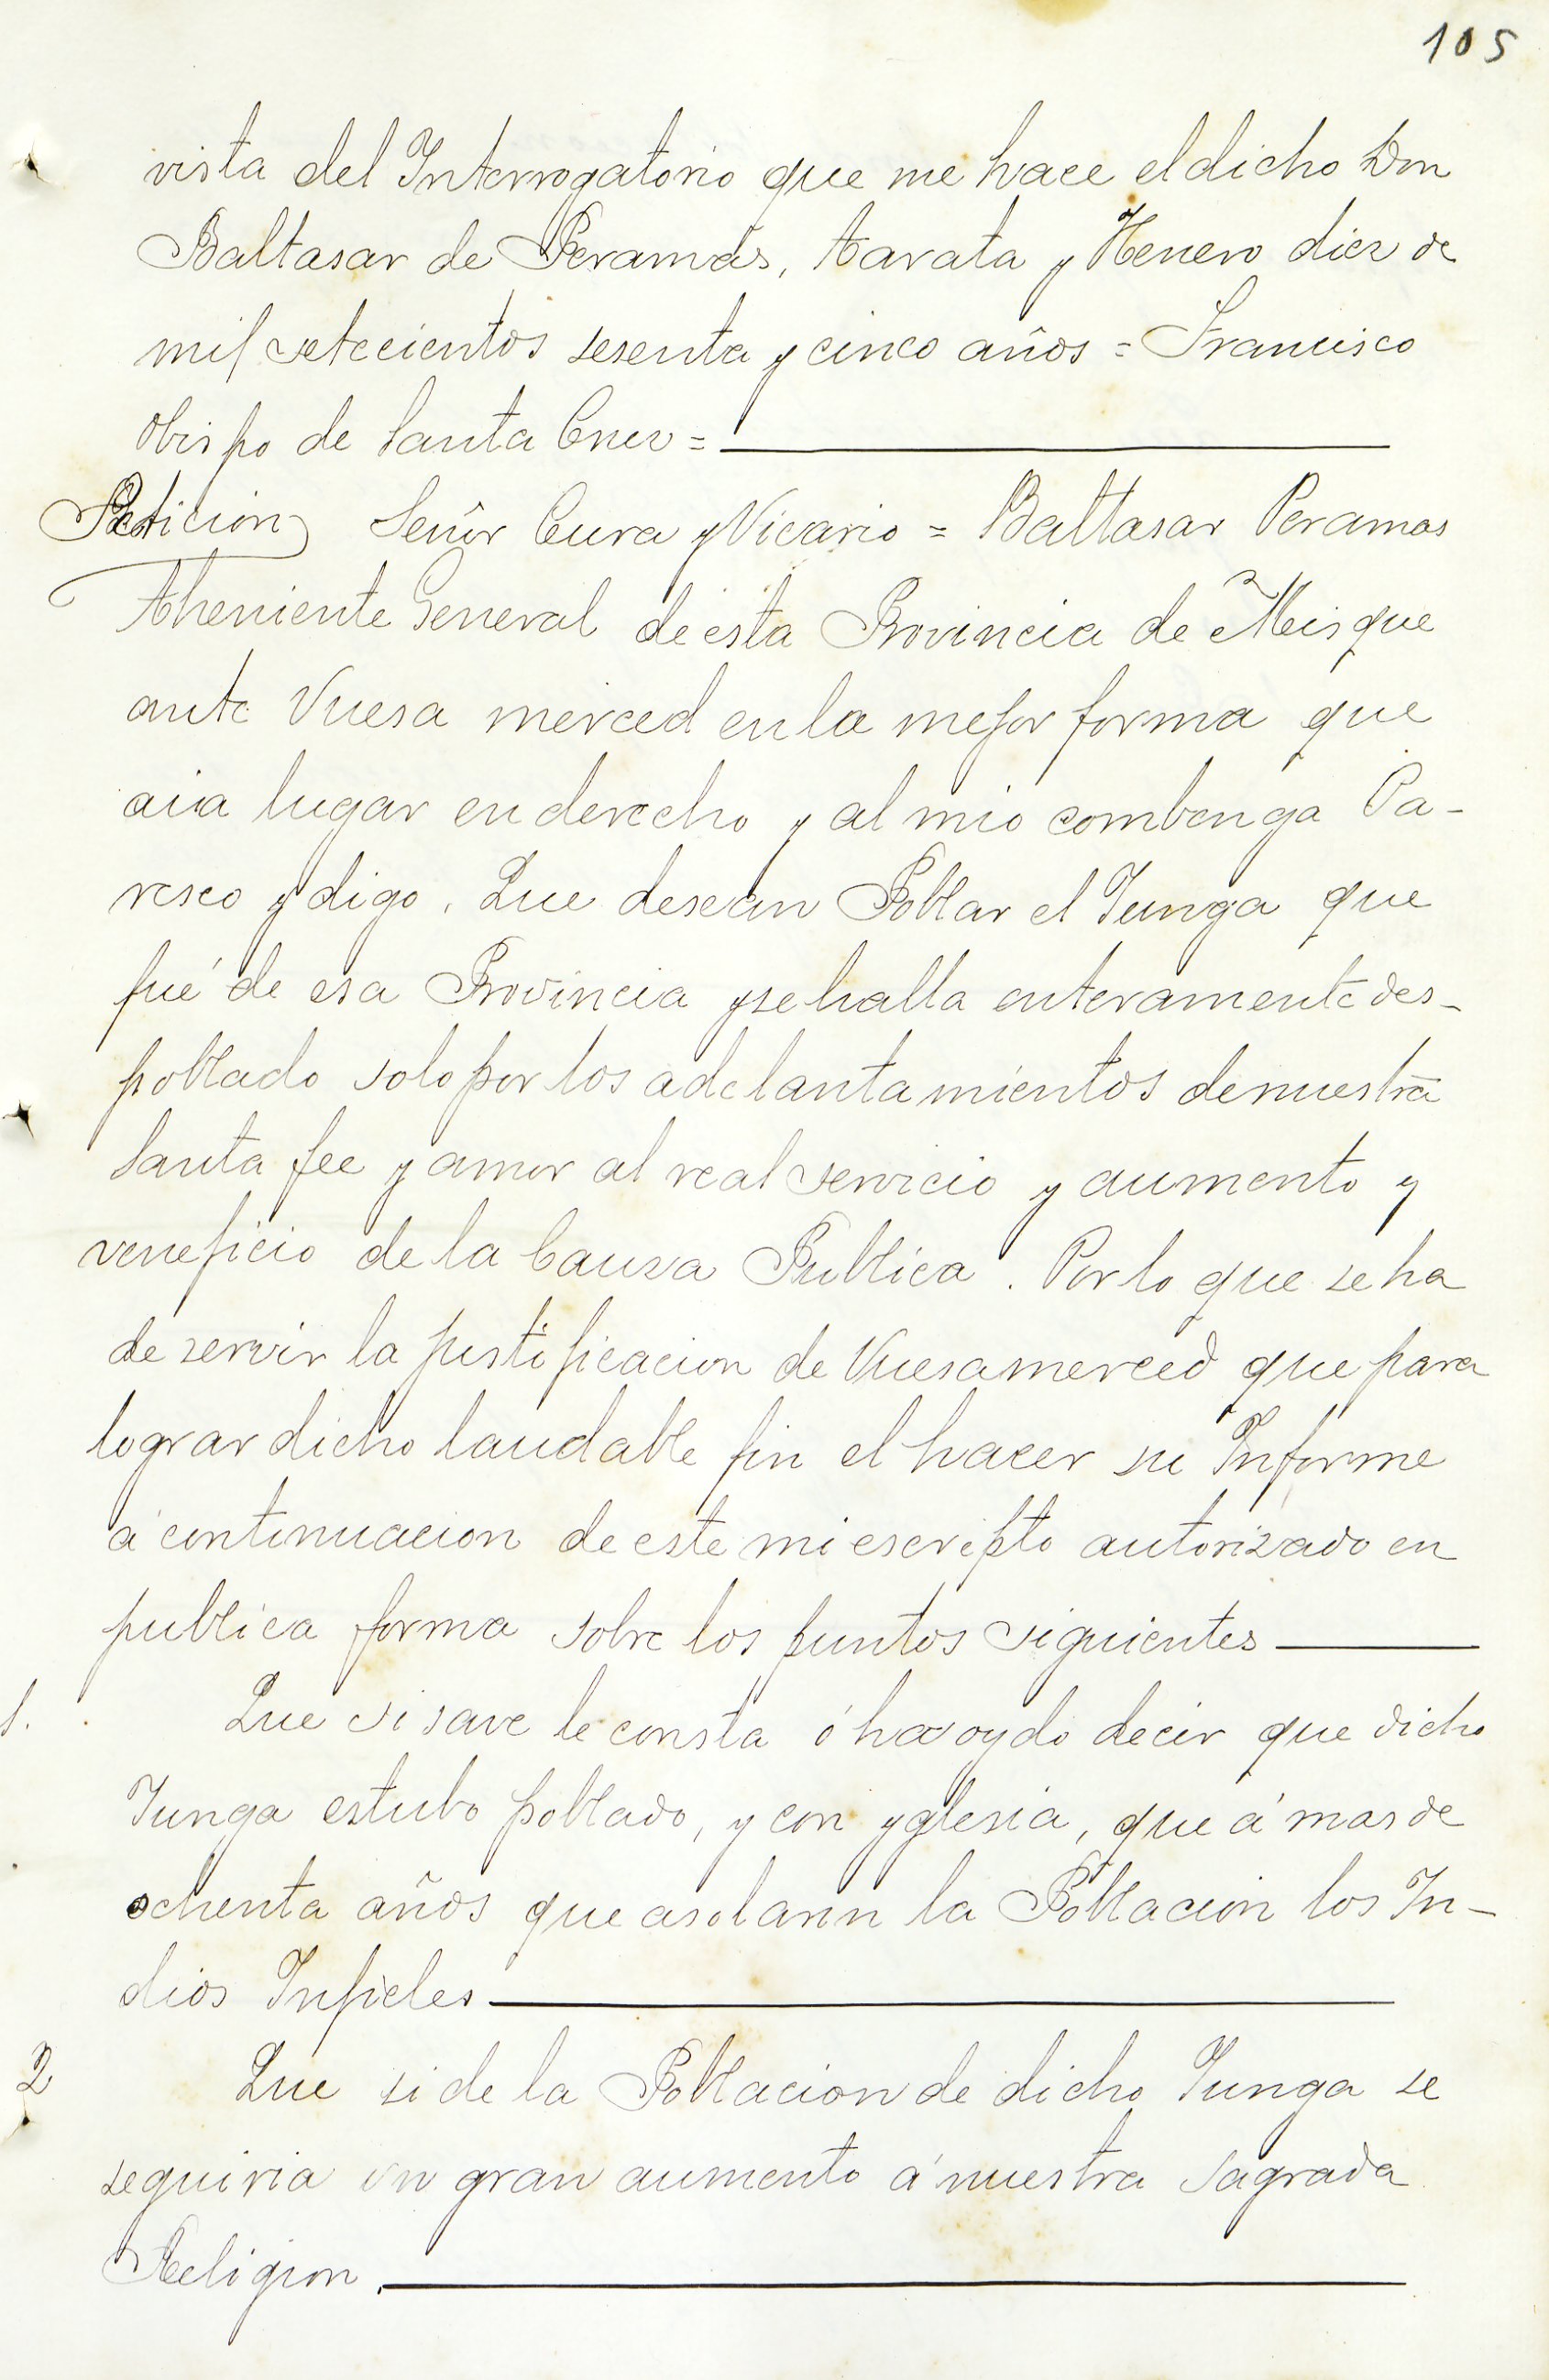 105
vista del Interrogatorio que me hace el dicho Don
Baltasar de Peramás, tarata y Henero diez de
mil setecientos sesenta y cinco años = Francisco
obispo de Santa Cruz =
Peticion Señor Cura y Vicario = Baltasar Peramas
theniente General de esta Provincia de Misque
ante Vuesa merced en la mejor forma que
aia lugar en derecho y al mio combenga Pa-
resco y digo. Que desean Poblar el Yunga que
fué de esa Provincia y se halla enteramente des-
poblado solo por los adelantamientos de nuestra
Santa fee y amor al real servicio y aumento y
veneficio de la Causa Publica. Por lo que se ha
de servir la justificacion de Vuesamerced que para
lograr dicho laudable fin el hacer su Informe
á continuacion de este mi escripto autorizado en
publica forma sobre los puntos siguientes
1. Que si save le consta ó ha oydo decir que dicho
Yunga estubo poblado, y con yglesia, que á mas de
ochenta años que asolann la Poblacion los In-
dios Infieles
2 Que si de la Poblacion de dicho Yunga se
seguiria un gran aumento á nuestra sagrada
Religion.